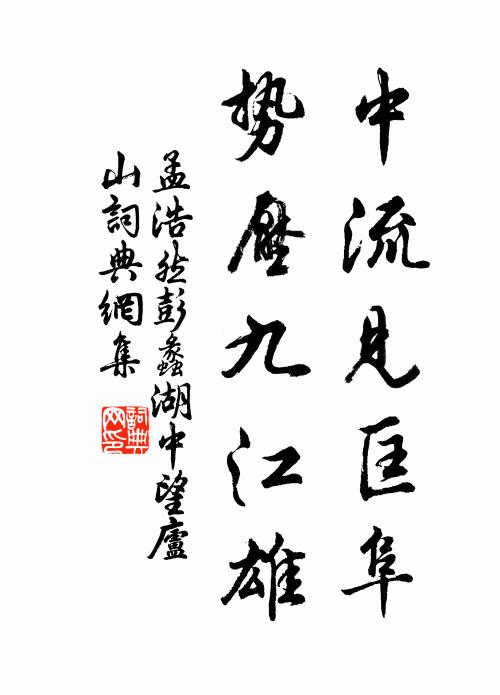 中流見匡阜
势壓九江雄
孟浩然彭蠡湖中望廬
山詞典網集
詞典网印